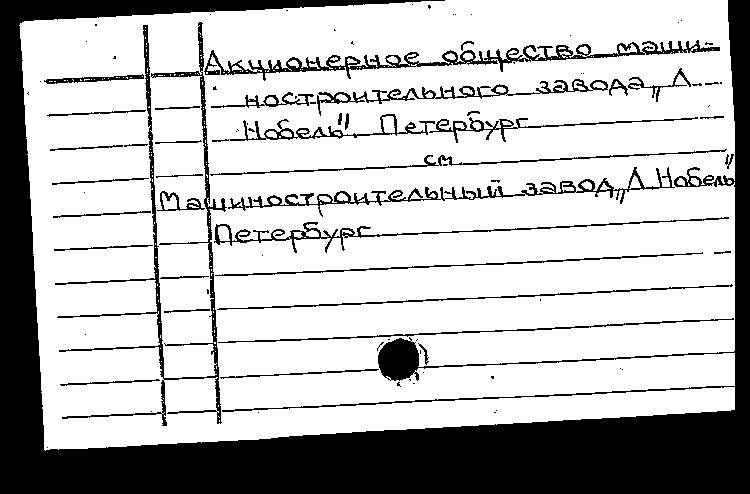 Акционерное общество маши-
ностроительного завода „Л.
Нобель". Петербург
см
Машиностроительный завод „Л Нобель"
Петербург.